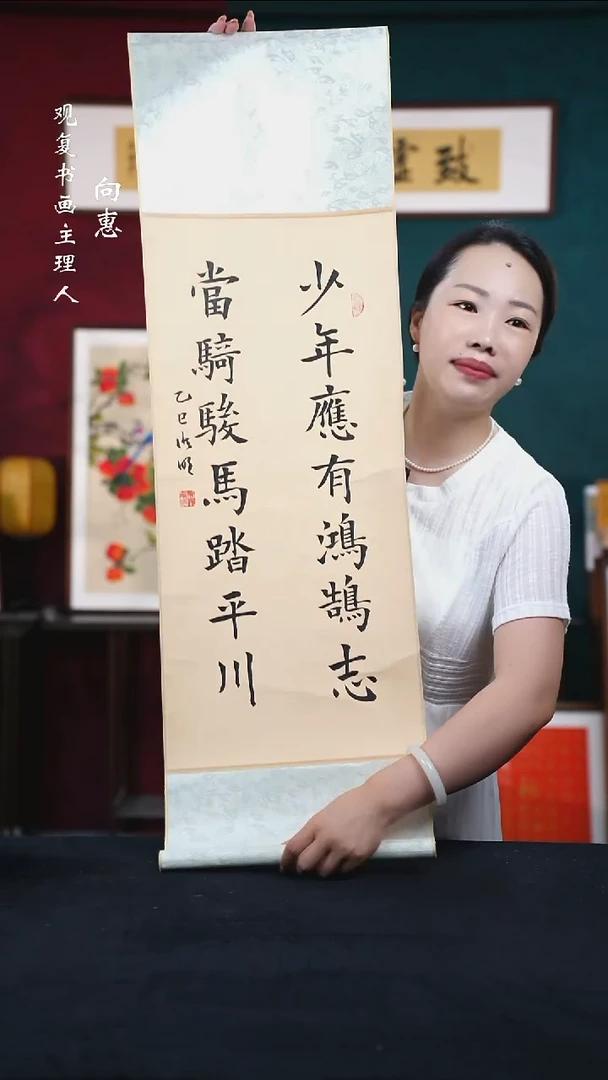 观复书画主理人
向惠
少年應有鴻鵠志
當騎駿馬踏平川
乙巳